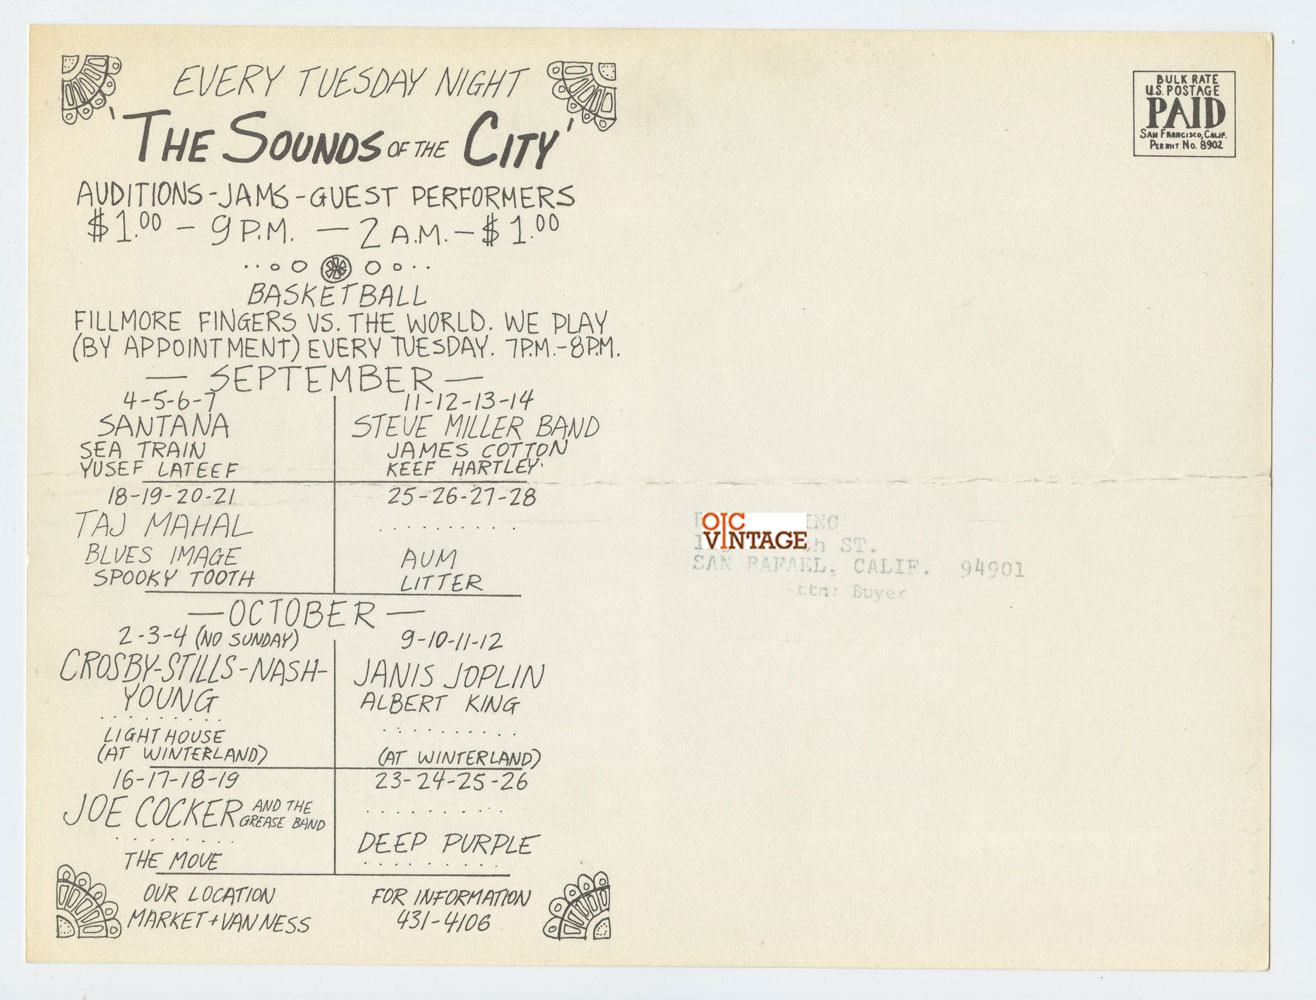 EVERY TUESDAY NIGHT
'THE SOUNDS OF THE CITY'
AUDITIONS-JAMS-GUEST PERFORMERS
$1.00 - 9 P.M. - 2 A.M. - $1.00
BASKETBALL
FILLMORE FINGERS VS. THE WORLD. WE PLAY
(BY APPOINTMENT) EVERY TUESDAY. 7P.M.-8P.M.
— SEPTEMBER —
4-5-6-7
SANTANA
SEA TRAIN
YUSEF LATEEF
11-12-13-14
STEVE MILLER BAND
JAMES COTTON
KEEF HARTLEY
18-19-20-21
TAJ MAHAL
BLUES IMAGE
SPOOKY TOOTH
25-26-27-28
..........
AUM
LITTER
— OCTOBER —
2-3-4 (NO SUNDAY)
CROSBY-STILLS-NASH-
YOUNG
.........
LIGHTHOUSE
(AT WINTERLAND)
9-10-11-12
JANIS JOPLIN
ALBERT KING
..........
(AT WINTERLAND)
16-17-18-19
JOE COCKER AND THE
GREASE BAND
........
THE MOVE
23-24-25-26
..........
DEEP PURPLE
..........
OUR LOCATION
MARKET + VAN NESS
FOR INFORMATION
431-4106
BULK RATE
U.S. POSTAGE
PAID
SAN FRANCISCO, CALIF.
PERMIT No. 8902
OJC
VINTAGE
ST.
SAN RAFAEL, CALIF. 94901
Buyer